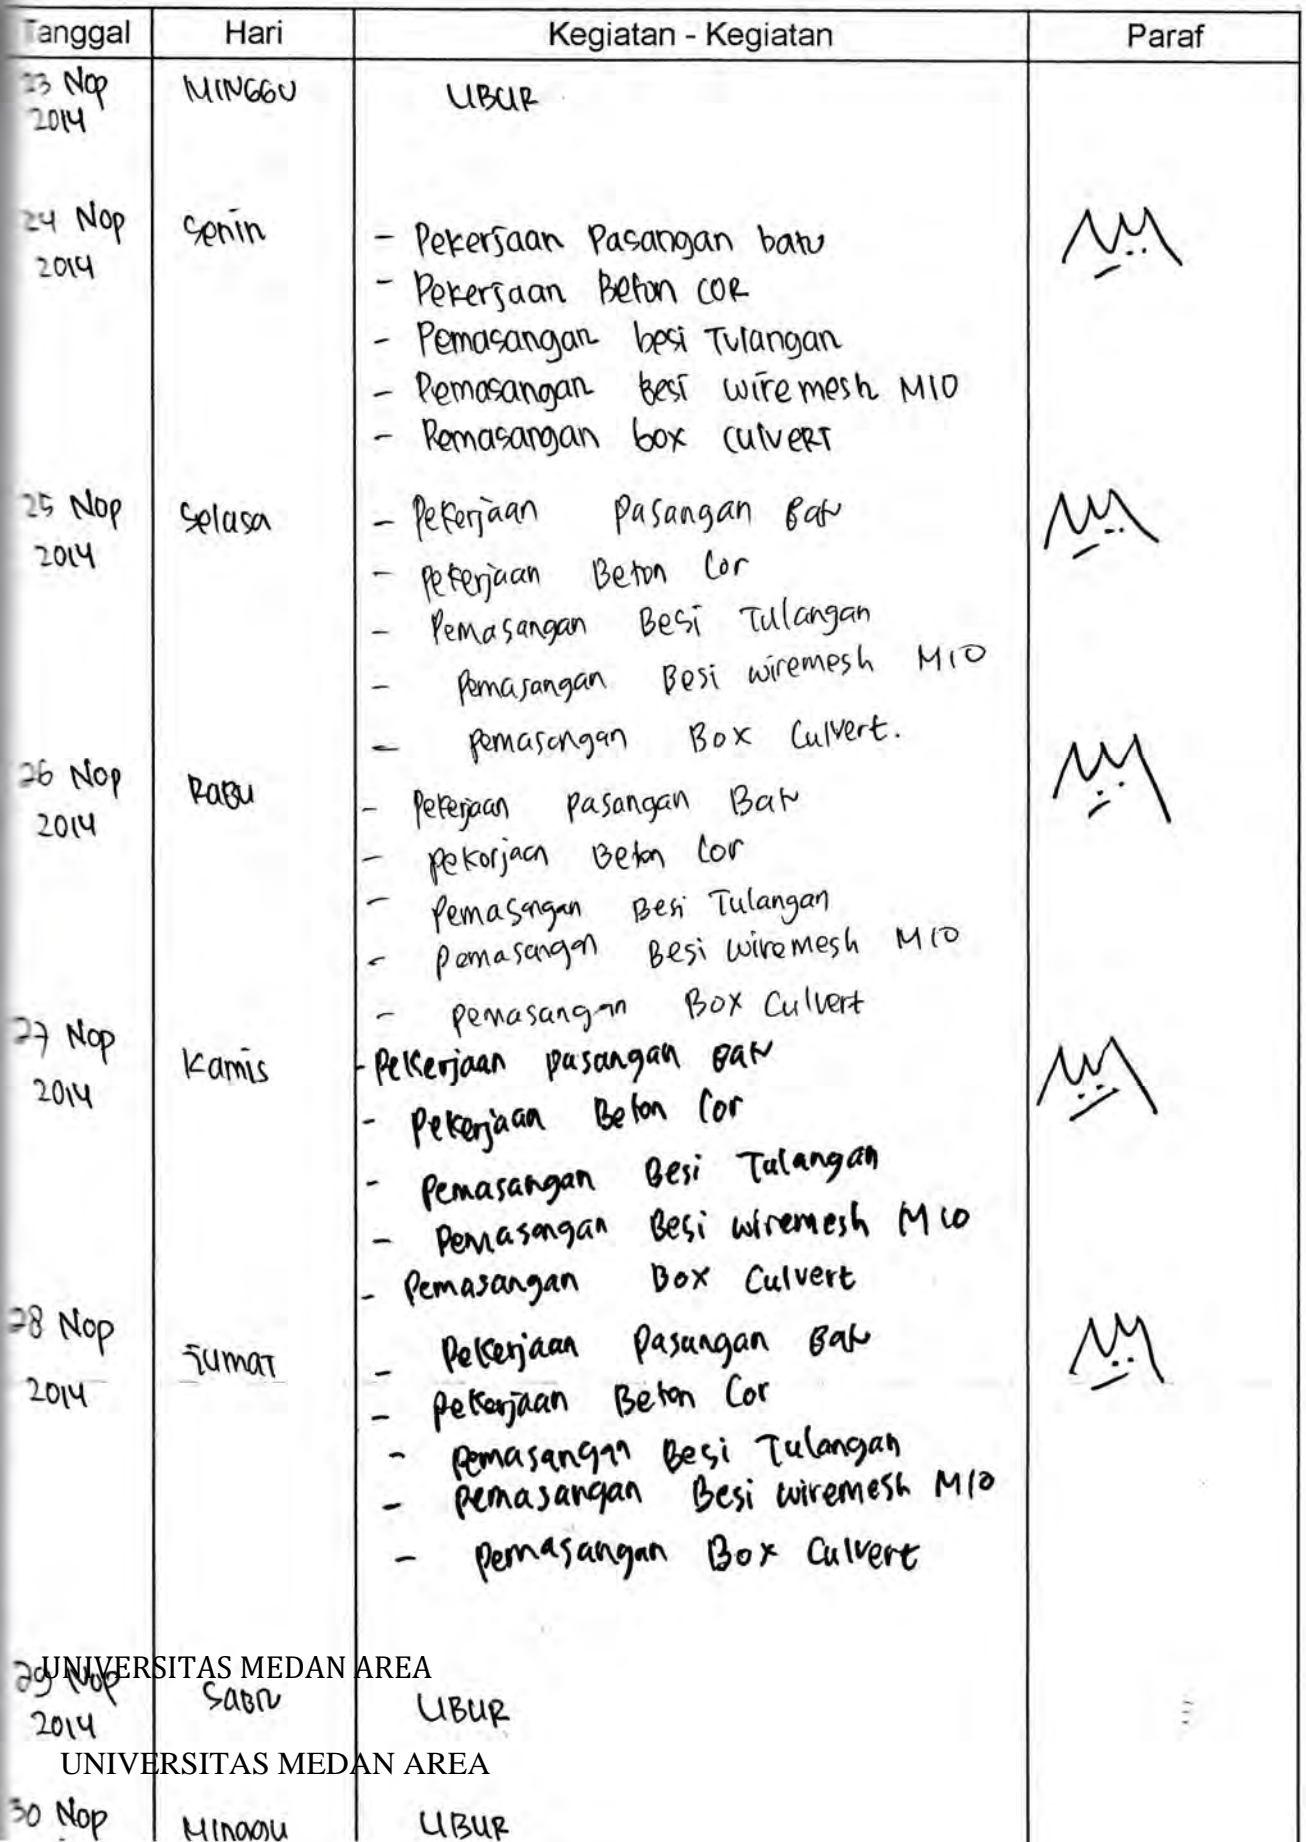 Tanggal Hari Kegiatan - Kegiatan Paraf
23 Nop MINGGU LIBUR
2014
24 Nop Senin
2014
- Pekerjaan Pasangan batu
- Pekerjaan Beton COR
- Pemasangan besi Tulangan
- Pemasangan besi wiremesh M10
- Pemasangan box culvert
25 Nop Selasa - Pekerjaan Pasangan Batu
2014
- Pekerjaan Beton Cor
- Pemasangan Besi Tulangan
- Pemasangan Besi wiremesh M10
- Pemasangan Box Culvert.
26 Nop Rabu - Pekerjaan Pasangan Batu
2014
- Pekerjaan Beton Cor
- Pemasangan Besi Tulangan
- Pemasangan Besi wiremesh M10
- Pemasangan Box Culvert
27 Nop Kamis - Pekerjaan pasangan Batu
2014
- Pekerjaan Beton Cor
- Pemasangan Besi Tulangan
- Pemasangan Besi wiremesh M10
- Pemasangan Box Culvert
28 Nop Jumat - Pekerjaan Pasangan Batu
2014
- Pekerjaan Beton Cor
- Pemasangan Besi Tulangan
- Pemasangan Besi wiremesh M10
- Pemasangan Box Culvert
UNIVERSITAS MEDAN AREA
29 Nop Sabtu LIBUR
2014
UNIVERSITAS MEDAN AREA
30 Nop Minggu LIBUR